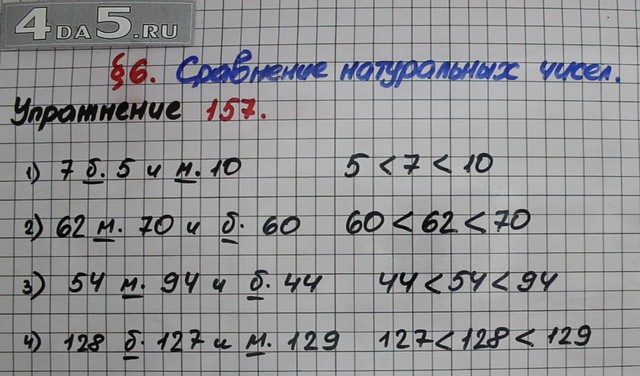 4DA5.RU
§6. Сравнение натуральных чисел.
Упражнение 157.
1) 7 б. 5 и м. 10 5 < 7 < 10
2) 62 м. 70 и б. 60 60 < 62 < 70
3) 54 м. 94 и б. 44 44 < 54 < 94
4) 128 б. 127 и м. 129 127 < 128 < 129